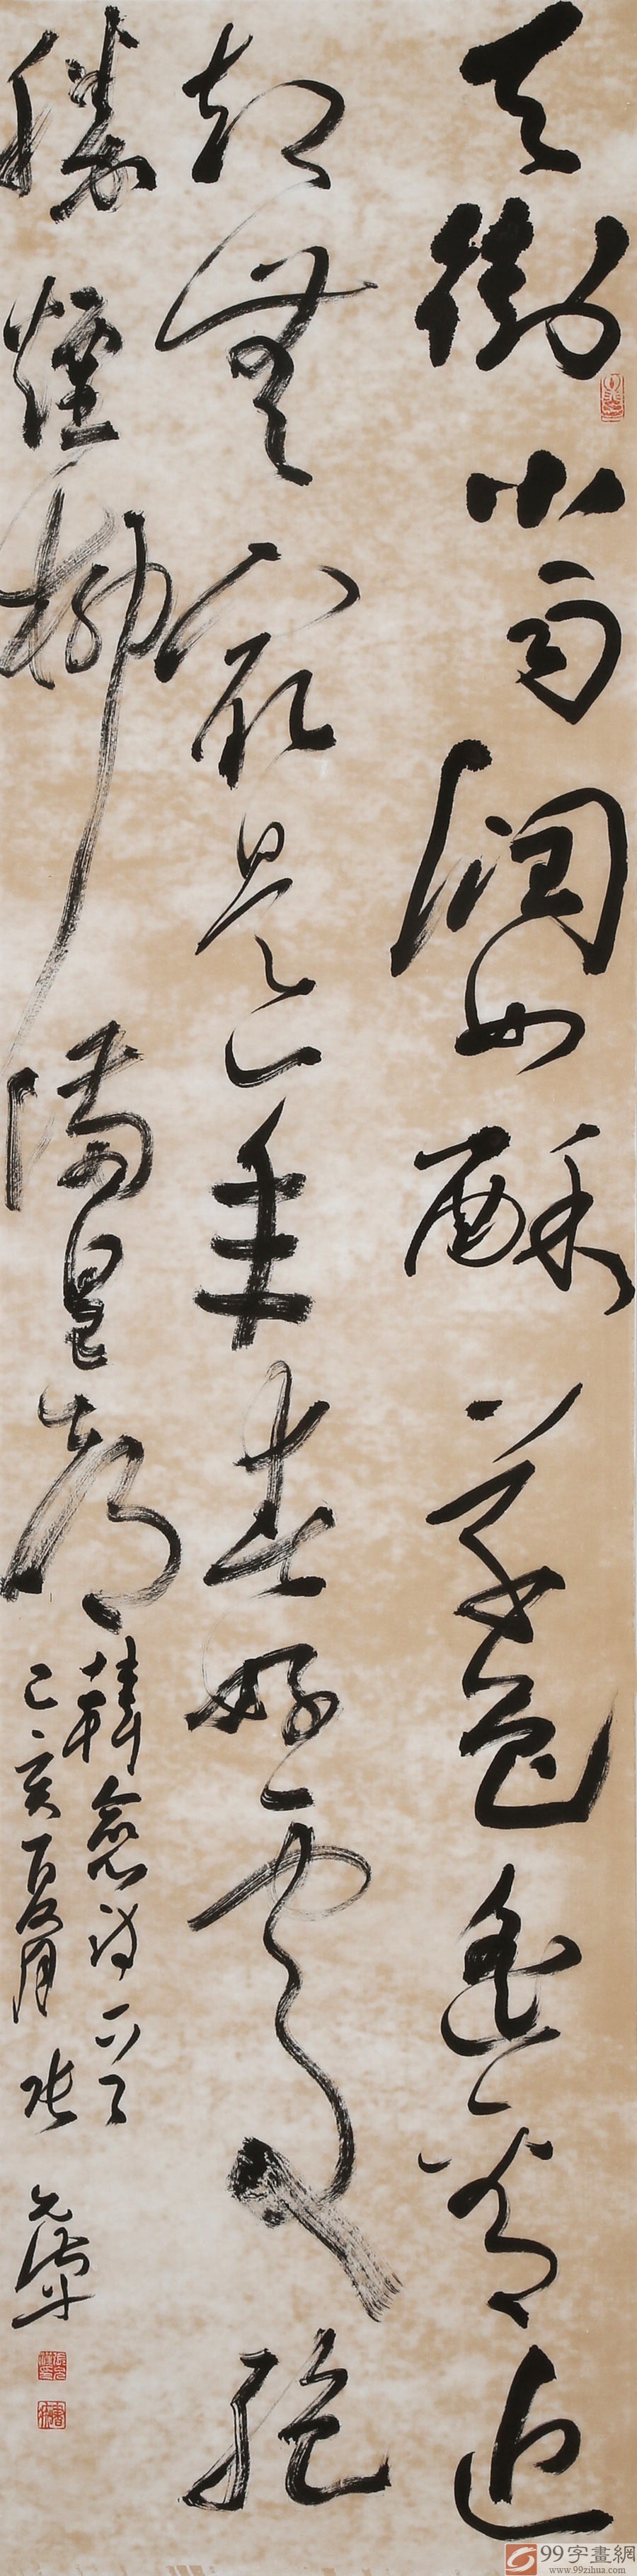 天街小雨润如酥草色遥看近
却無最是一年春好處绝
勝煙柳满皇都
韓愈诗一首
己亥夏月张
99字畫網
www.99zihua.com